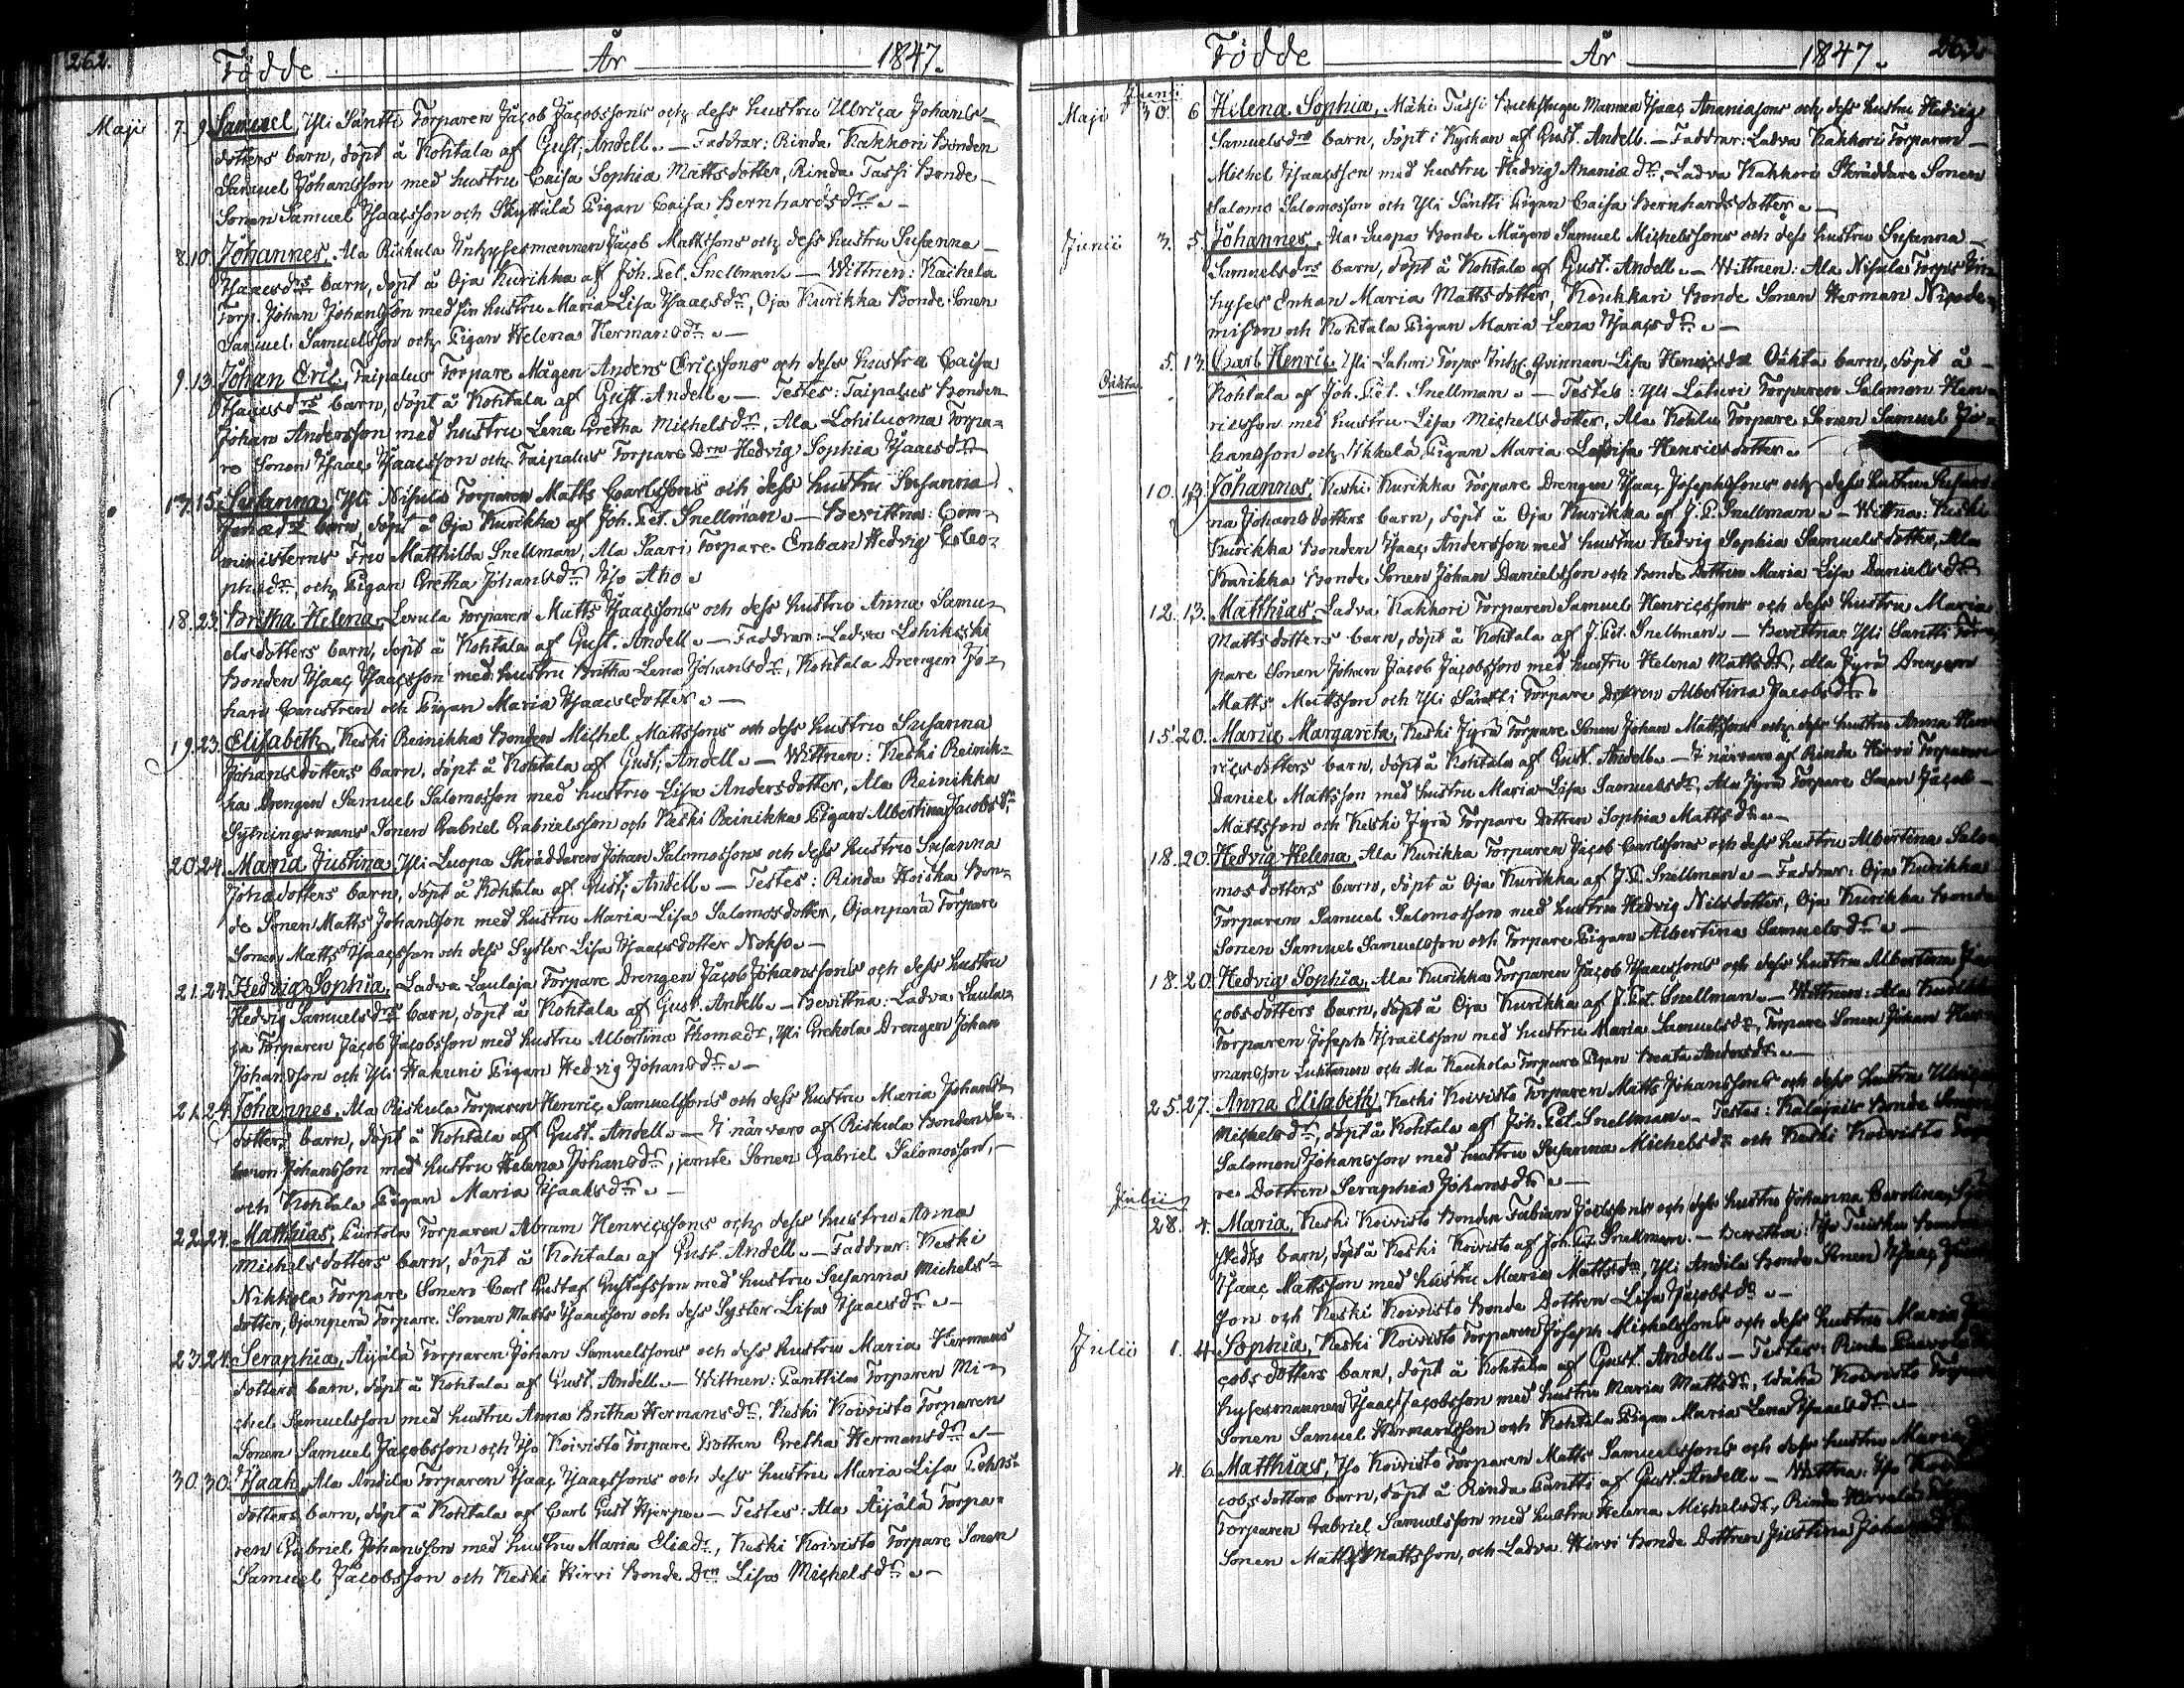 262.
Födde År 1847.
Maji 7. 9. Samuel, Yli Säntti Torparen Jacob Jacobssons och dess hustru Ulrica Johans-
dotters barn, döpt å Kohtala af Gust. Andell. — Faddrar: Rinda Kakkori Bonden
Samuel Johansson med hustru Caisa Sophia Mattsdotter, Rinda Tassi Bonde
Sonen Samuel Isaacsson och Skyttälä Pigan Caisa Bernhardsdr. —
8. 10. Johannes, Ala Riskula Inhysesmannen Jacob Mattssons och dess hustru Susanna
Isaacsdrs barn, döpt å Oja Kurikka af Joh. Pet. Snellman. — Wittnen: Kachela
Torp. Johan Johansson med sin hustru Maria Lisa Isaacsdr, Oja Kurikka Bonde Sonen
Samuel Samuelsson och Pigan Helena Hermansdr. —
9. 13. Johan Eric, Taipalus Torpare Mågen Anders Ericssons och dess hustru Caisa
Isaacsdrs barn, döpt å Kohtala af Gust. Andell. — Testes: Taipalus Bonden
Johan Andersson med hustru Lena Gretha Michelsdr, Ala Lohiluoma Torpa=
re Sonen Isaac Isaacsson och Taipalus Torpare Drn Hedvig Sophia Isaacsdr
13. 15. Susanna, Yli Nisula Torparen Matts Carlssons och dess hustru Susanna
Jonædr barn, döpt å Oja Kurikka af Joh. Pet. Snellman. — Bevittna: Com=
ministerns Fru Matthilda Snellman, Ala Saari Torpare Enkan Hedvig Cleo=
phædr, och Pigan Gretha Johansdr Iso Aho.
18. 23. Britha Helena, Levula Torparen Matts Isaacssons och dess hustru Anna Samu=
elsdotters barn, döpt å Kohtala af Gust. Andell. — Faddrar: Ladva Lohikoski
Bonden Isaac Isaacsson med hustru Britha Lena Johansdr, Kohtala Drengen Jo=
han Carlström och Pigan Maria Isaacsdotter. —
19. 23. Elisabeth, Keski Reinikka Bonden Michel Mattssons och dess hustru Susanna
Johansdotters barn, döpt å Kohtala af Gust. Andell. — Wittnen: Keski Reinik=
ka Drengen Samuel Salomosson med hustru Lisa Andersdotter, Ala Reinikka
Sytningsmans Sonen Gabriel Gabrielsson och Keski Reinikka Pigan Albertina Jacobsdr
20. 24. Maria Justina, Yli Luopa Skräddaren Johan Salomossons och dess hustru Susanna
Johædotters barn, döpt å Kohtala af Gust. Andell. — Testes: Rinda Hoiska Bon=
de Sonen Matts Johansson med hustru Maria Lisa Salomosdotter, Ojanperä Torpare
Sonen Matts Isaacsson och dess Syster Lisa Isaacsdotter Nokso. —
21. 24. Hedvig Sophia, Ladva Laulaja Torpare Drengen Jacob Johanssons och dess hustru
Hedvig Samuelsdrs barn, döpt å Kohtala af Gust. Andell. — Bevittna: Ladva Laula=
ja Torparen Jacob Jacobsson med hustru Albertina Thomædr, Yli Grekola Drengen Johan
Johansson och Yli Hakuni Pigan Hedvig Johansdr. —
21. 24. Johannes, Ala Riskula Torparen Henric Samuelssons och dess hustru Maria Johans=
dotters barn, döpt å Kohtala af Gust. Andell. — I närvaro af Riskula Bonden Sa=
lomon Johansson med hustru Helena Johansdr, jemte Sonen Gabriel Salomosson, —
och Kohtala Pigan Maria Isaaksdr. —
22. 24. Matthias, Purtola Torparen Abram Henricssons och dess hustru Anna
Michelsdotters barn, döpt å Kohtala af Gust. Andell. — Faddrar: Keski
Nikkola Torpare Sonen Carl Gustaf Gustafsson med hustru Susanna Michels=
dotter, Ojanperä Torpare Sonen Matts Isaacsson och dess Syster Lisa Isaacsdr. —
23. 24. Seraphia, Äijälä Torparen Johan Samuelssons och dess hustru Maria Hermans
dotters barn, döpt å Kohtala af Gust. Andell. — Wittnen: Panttila Torparen Mi=
chel Samuelsson med hustru Anna Britha Hermansdr, Keski Koivisto Torparen
Sonen Samuel Jacobsson och Iso Koivisto Torpare Dottren Gretha Hermansdr. —
30. 30. Isaak, Ala Andila Torparen Isaac Isaacssons och dess hustru Maria Lisa Johans
dotters barn, döpt å Kohtala af Carl Gust Hjerpe. — Testes: Ala Äijälä Torpa=
ren Gabriel Johansson med hustru Maria Eliædr, Keski Koivisto Torpare Sonen
Samuel Jacobsson och Keski Hirvi Bonde Drn Lisa Michelsdr. —
Födde År 1847.
Junii
Maji 30. 6. Helena Sophia, Mäki Tassi Backstugu Mannen Isaac Ananiasons och dess hustru Hedvig
Samuelsdrs barn, döpt i Kyrkan af Gust. Andell. — Faddrar: Ladva Kakkori Torparen
Michel Isaacsson med hustru Hedvig Ananiædr, Ladva Kakkori Skräddare Sonen
Salomo Salomosson och Yli Säntti Pigan Caisa Bernhardsdotter. —
Junii 3. 5. Johannes, Ala Luopa Bonde Mågen Samuel Michelssons och dess hustru Susanna
Samuelsdrs barn, döpt å Kohtala af Gust. Andell. — Wittnen: Ala Nisula Torps In=
hyses Enkan Maria Mattsdotter, Koukkari Bonde Sonen Herman Nipode=
misson och Kohtala Pigan Maria Lena Isaacsdr. —
5. 13. Carl Henric, Yli Laturi Torps Inhs Qvinnan Lisa Henricsdrs Oäkta barn, döpt å
Oäkta
Kohtala af Joh. Pet. Snellman. — Testes: Yli Laturi Torparen Salomon Hen=
ricsson med hustru Lisa Michelsdotter, Ala Kohlu Torpare Sonen Samuel Jo=
hansson och Ikkelä Pigan Maria Lovisa Henricsdotter.
10. 13. Johannes, Keski Kurikka Torpare Drengen Isaac Josephssons och dess hustru Susan=
na Johansdotters barn, döpt å Oja Kurikka af J. P. Snellman. — Wittna: Keski
Kurikka Bonden Isaac Andersson med hustru Hedvig Sophia Samuelsdotter, Ala
Kurikka Bonde Sonen Johan Danielsson och Bonde Dottren Maria Lisa Danielsdr
12. 13. Matthias, Ladva Kakkori Torparen Samuel Henricssons och dess hustru Maria
Mattsdotters barn, döpt å Kohtala af J. Pet. Snellman. — Bevittna: Yli Säntti Tor=
pare Sonen Johan Jacob Jacobsson med hustru Helena Mattsdr, Ala Jyrä Drengen
Matts Mattsson och Yli Säntti Torpare Dottren Albertina Jacobsdr.
15. 20. Maria Margareta, Keski Jyrä Torpare Sonen Johan Mattssons och dess hustru Anna Hen=
ricsdotters barn, döpt å Kohtala af Gust. Andell. — I närvaro af Rinda Hirvi Torparen
Daniel Mattsson med hustru Maria Lisa Samuelsdr, Ala Jyrä Torpare Sonen Jacob
Mattsson och Keski Jyrä Torpare Dottren Sophia Mattsdr. —
18. 20. Hedvig Helena, Ala Kurikka Torparen Jacob Carlssons och dess hustru Albertina Salo=
mosdotters barn, döpt å Oja Kurikka af J. P. Snellman. — Faddrar: Oja Kurikka
Torparen Samuel Salomosson med hustru Hedvig Nilsdotter, Oja Kurikka Bonde
Sonen Samuel Samuelsson och Torpare Pigan Albertina Samuelsdr. —
18. 20. Hedvig Sophia, Ala Kurikka Torparen Jacob Isaacssons och dess hustru Albertina Ja=
cobsdotters barn, döpt å Oja Kurikka af J. Pet. Snellman. — Wittnen: Ala
Torparen Joseph Israelsson med hustru Maria Samuelsdr, Torpare Sonen Johan Her=
mansson Luhtanen och Ala Kaukola Torpare Pigan Beata Andersdr. —
25. 27. Anna Elisabeth, Keski Koivisto Torparen Matts Johanssons och dess hustru Ulrica
Michelsdr, döpt å Kohtala af Joh. Pet. Snellman. — Testes: Kalajais Bonde Sonen
Salomon Johansson med hustru Susanna Michelsdr och Keski Koivisto Torpa=
re Dottren Seraphia Johansdr. —
Julii
28. 4. Maria, Keski Koivisto Bonden Fabian Joelssons och dess hustru Johanna Carolina
stedts barn, döpt å Keski Koivisto af Joh. Pet. Snellman. — Bevittna: Iso Bonden
Isaac Mattsson med hustru Maria Mattsdr, Yli Andila Bonde Sonen Isaac
son och Keski Koivisto Bonde Dottren Lisa Jacobsdr. —
Julii 1. 4. Sophia, Keski Koivisto Torparen Joseph Michelssons och dess hustru Maria Ja
cobsdotters barn, döpt å Kohtala af Gust. Andell. — Testes: Rinda
hysesmannen Isaac Jacobsson med hustru Maria Mattsdr, Koivisto Torpare
Sonen Samuel Hermansson och Kohtala Pigan Maria Lena Isaacsdr. —
4. 6. Matthias, Iso Koivisto Torparen Matts Samuelssons och dess hustru Maria
cobsdotters barn, döpt å Rinda Pantti af Gust. Andell. — Wittna: Iso
Torparen Gabriel Samuelsson med hustru Helena Michelsdr, Rinda
Sonen Matts Mattsson, och Ladva Hirvi Bonde Dottren Justina